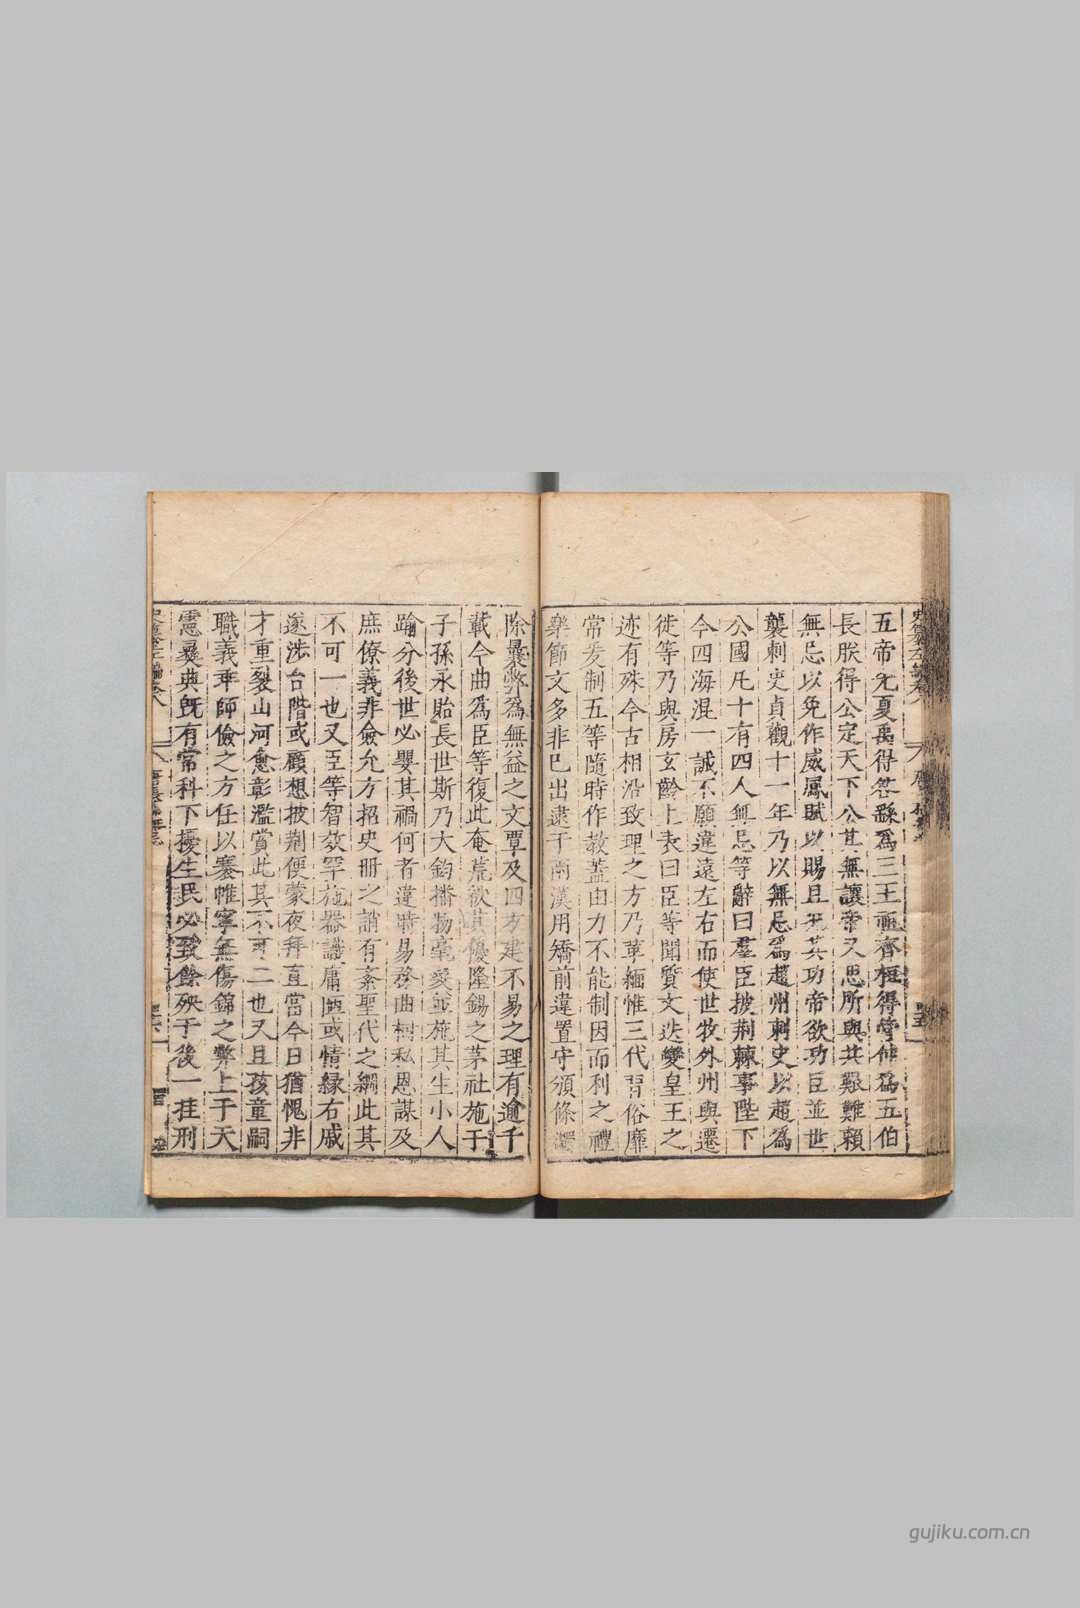 五帝先夏禹得咎繇爲三王祖齊桓得管仲爲五伯
長朕得公定天下公其無讓帝又思所與共艱難賴
無忌以免作威鳳賦以賜且況其功帝欲功臣並世
襲刺史貞觀十一年乃以無忌爲趙州刺史以趙爲
公國凡十有四人無忌等辭曰羣臣披荆棘事陛下
今四海混一誠不願違遠左右而使世牧外州與遷
徙等乃與房玄齡上表曰臣等聞質文迭變皇王之
迹有殊今古相沿致理之方乃革緬惟三代習俗靡
常爰制五等隨時作教蓋由力不能制因而利之禮
樂節文多非已出逮于兩漢用矯前違置守頒條蠲
除曩弊爲無益之文覃及四方建不易之理有逾千
載今曲爲臣等復此奄荒欲其優隆錫之茅社施于
子孫永貽長世斯乃大鈞播物毫髮並施其生小人
踰分後世必嬰其禍何者違時易務曲樹私恩謀及
庶僚義非僉允方招史册之誚有紊聖代之綱此其
不可一也又臣等智效罕施器識庸陋或情縁右戚
遂渉台階或顧想披荆便蒙夜拜直當今日猶愧非
才重裂山河愈彰濫賞此其不可二也又且孩童嗣
職義乖師儉之方任以褰帷寧無傷錦之弊上干天
憲曩典旣有常科下擾生民必致餘殃于後一挂刑
gujiku.com.cn